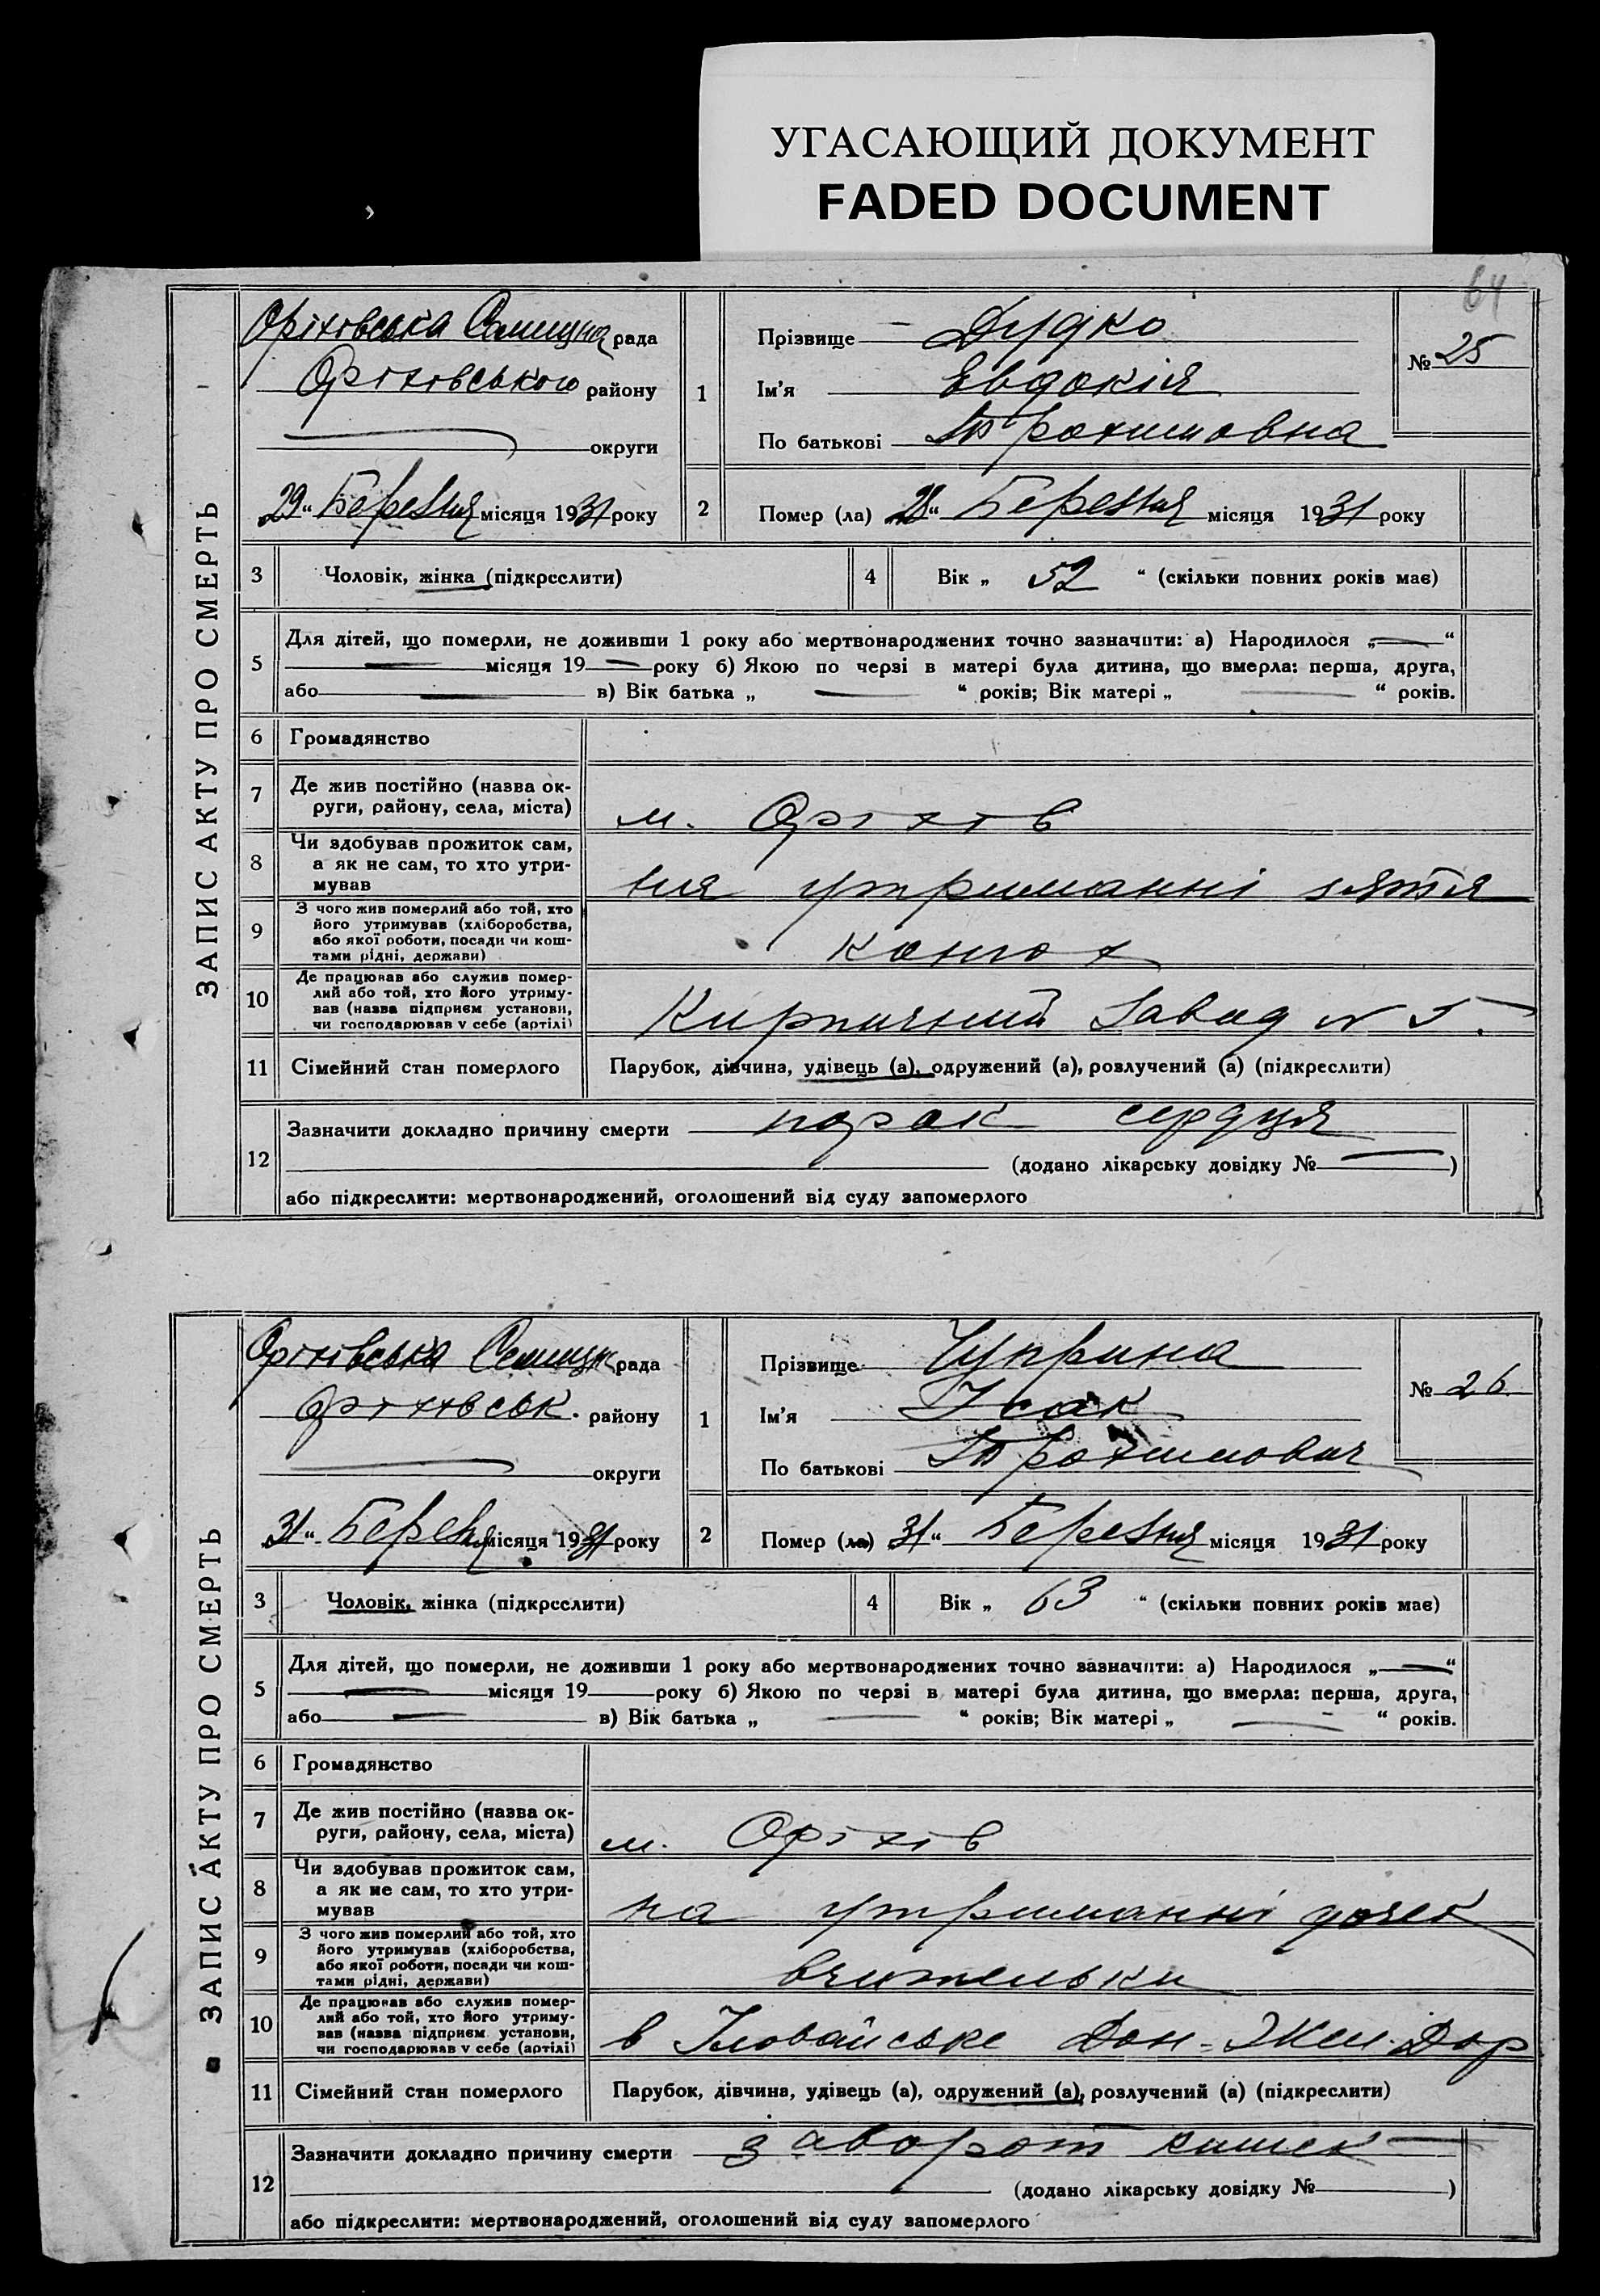 УГАСАЮЩИЙ ДОКУМЕНТ
FADED DOCUMENT
64
ЗАПИС АКТУ ПРО СМЕРТЬ
Оріхівська Селищна рада
Оріхівського району
округи
29 " Березня місяця 1931 року
1
Прізвище Дудко
Ім'я Евдокія
По батькові Трохимовна
№ 25
2
Помер (ла) 28 " Березня місяця 1931 року
3 Чоловік, жінка (підкреслити)
4 Вік „ 52 “ (скільки повних років має)
5 Для дітей, що померли, не доживши 1 року або мертвонароджених точно зазначити: а) Народилося „ — “
— місяця 19 — року б) Якою по черзі в матері була дитина, що вмерла: перша, друга,
або — в) Вік батька „ — “ років; Вік матері „ — “ років.
6 Громадянство
7 Де жив постійно (назва ок-
руги, району, села, міста)
м. Оріхів
8 Чи здобував прожиток сам,
а як не сам, то хто утри-
мував
на утриманні зятя
9 З чого жив померлий або той, хто
його утримував (хліборобства,
або якої роботи, посади чи кош-
тами рідні, держави)
конюх
10 Де працював або служив помер-
лий або той, хто його утриму-
вав (назва підприєм установи,
чи господарював у себе (артілі)
Кирпичний Завод №
11 Сімейний стан померлого
Парубок, дівчина, удівець (а), одружений (а), розлучений (а) (підкреслити)
12 Зазначити докладно причину смерти порок сердця
(додано лікарську довідку № — )
або підкреслити: мертвонароджений, оголошений від суду запомерлого
ЗАПИС АКТУ ПРО СМЕРТЬ
Оріхівська Селищн рада
Оріхівськ. району
округи
31 " Березня місяця 1931 року
1
Прізвище Чуприна
Ім'я Ісак
По батькові Трохимович
№ 26
2
Помер (ла) 31 " Березня місяця 1931 року
3 Чоловік, жінка (підкреслити)
4 Вік „ 63 “ (скільки повних років має)
5 Для дітей, що померли, не доживши 1 року або мертвонароджених точно зазначити: а) Народилося „ — “
— місяця 19 року б) Якою по черзі в матері була дитина, що вмерла: перша, друга,
або — в) Вік батька „ — “ років; Вік матері „ — “ років.
6 Громадянство
7 Де жив постійно (назва ок-
руги, району, села, міста)
м. Оріхів
8 Чи здобував прожиток сам,
а як не сам, то хто утри-
мував
на утриманні дочек
9 З чого жив померлий або той, хто
його утримував (хліборобства,
або якої роботи, посади чи кош-
тами рідні, держави)
вчительки
10 Де працював або служив помер-
лий або той, хто його утриму-
вав (назва підприєм. установи,
чи господарював у себе (артілі)
в Іловайське Дон-Жел. Дор
11 Сімейний стан померлого
Парубок, дівчина, удівець (а), одружений (а), розлучений (а) (підкреслити)
12 Зазначити докладно причину смерти заворот кишек
(додано лікарську довідку № )
або підкреслити: мертвонароджений, оголошений від суду запомерлого